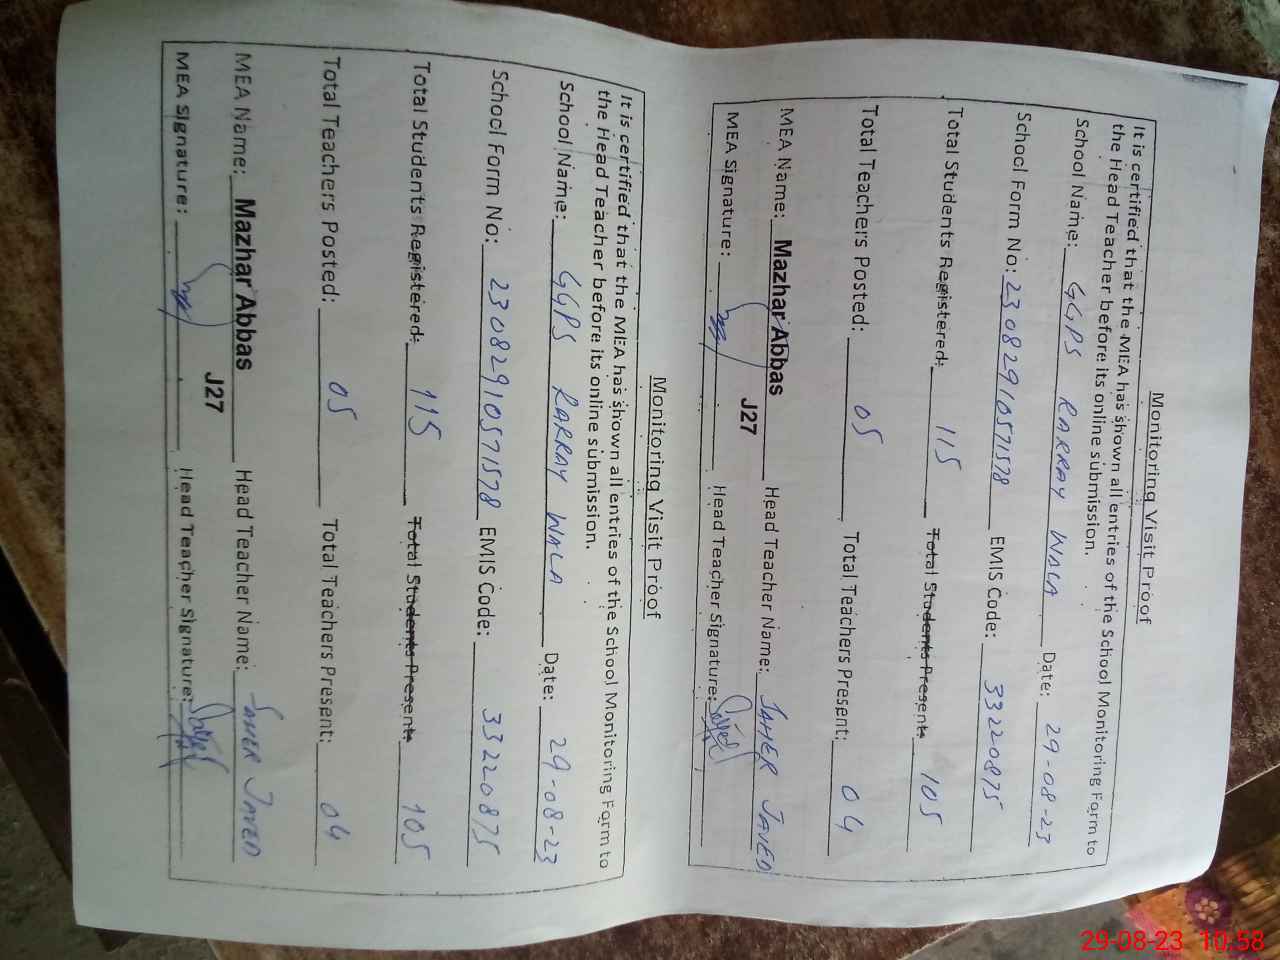 Monitoring Visit Proof
It is certified that the MEA has shown all entries of the School Monitoring Form to
the Head Teacher before its online submission.
School Name: GGPS RARRAY WALA Date: 29-08-23
School Form No: 23082910571578 EMIS Code: 33220875
Total Students Registered: 115 Total Students Present: 105
Total Teachers Posted: 05 Total Teachers Present: 04
MEA Name: Mazhar Abbas Head Teacher Name: JAVED
J27
MEA Signature: Head Teacher Signature:
Monitoring Visit Proof
It is certified that the MEA has shown all entries of the School Monitoring Form to
the Head Teacher before its online submission.
School Name: GGPS RARRAY WALA Date: 29-08-23
School Form No: 23082910571578 EMIS Code: 33220875
Total Students Registered: 115 Total Students Present: 105
Total Teachers Posted: 05 Total Teachers Present: 04
MEA Name: Mazhar Abbas Head Teacher Name: JAVED
J27
MEA Signature: Head Teacher Signature:
29-08-23 10:58